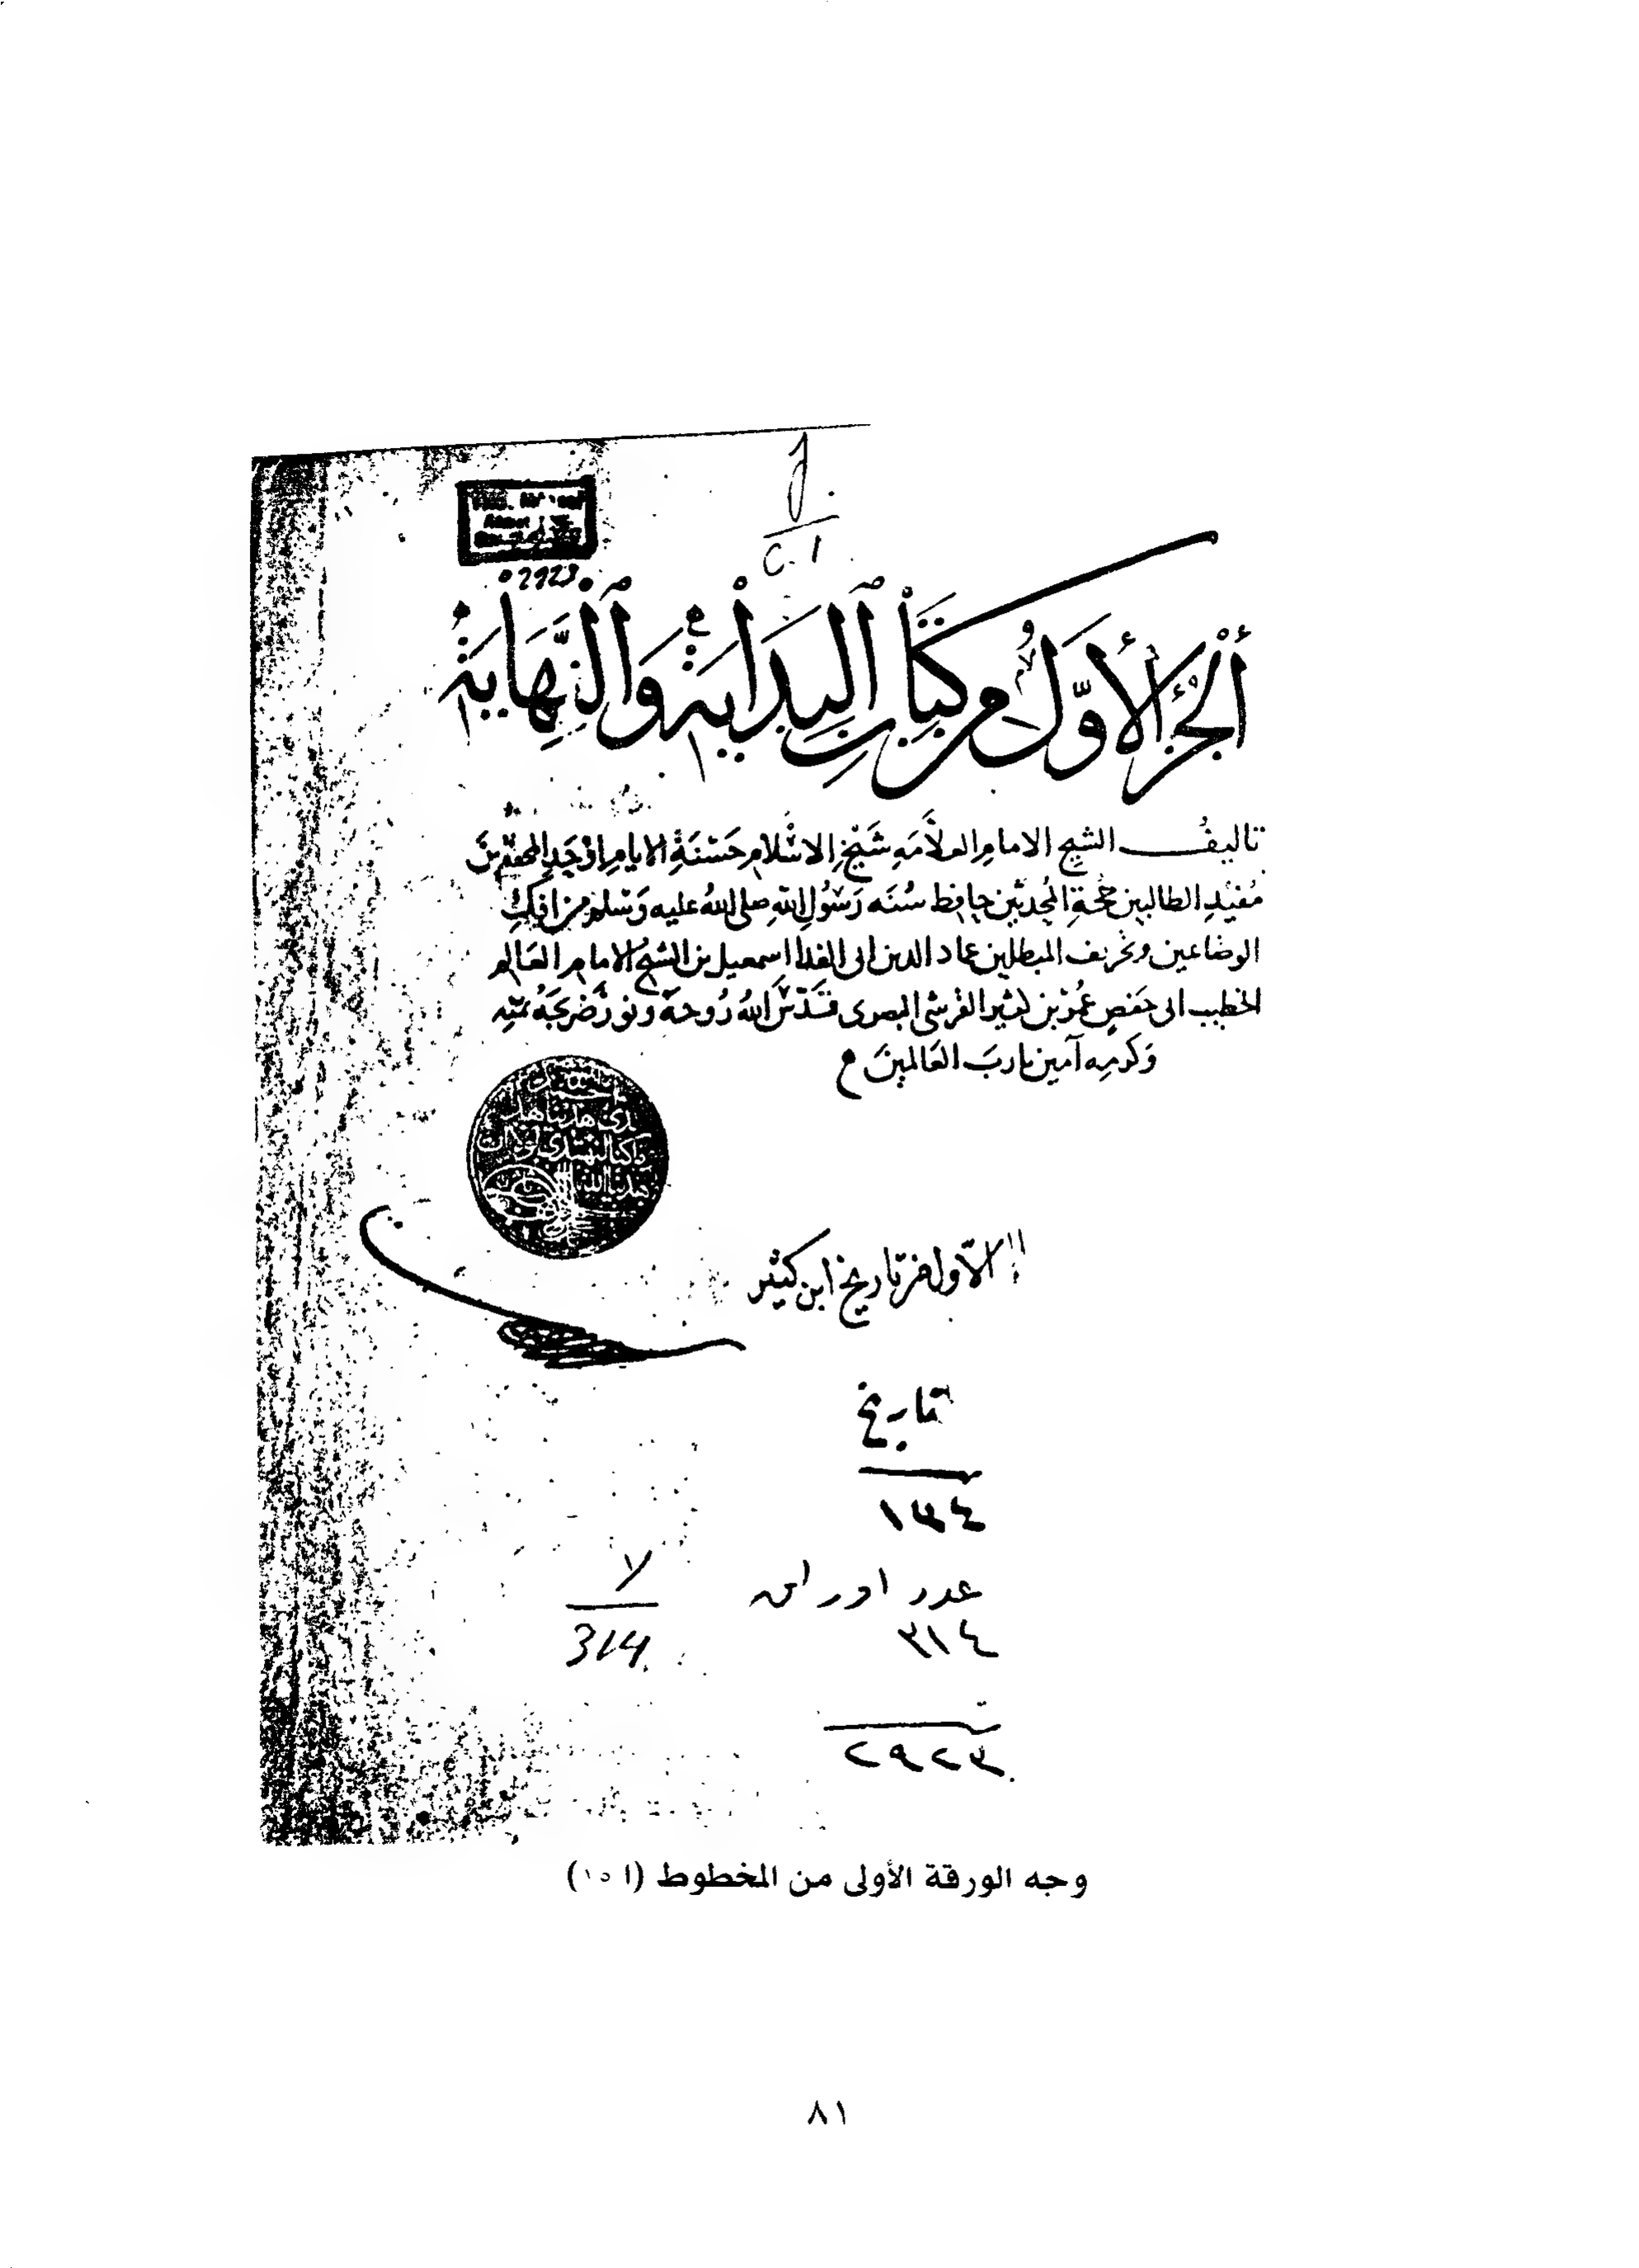 C. 1
02923
الجزء الأول من كتاب البداية والنهاية
تاليف الشيخ الامام العلامه شيخ الاسلام حسنة الايام اوحد المحققين
مفيد الطالبين حجة المحدثين حافظ سنه رسول الله صلى الله عليه وسلم من افك
الوضاعين وتحريف المبطلين عماد الدين ابى الفدا اسمعيل بن الشيخ الامام العالم
الخطيب ابى حفص عمر بن كثير القرشى البصرى قدس الله روحه ونور ضريحه بمنه
وكرمه آمين يا رب العالمين
الاول من تاريخ ابن كثير
تاريخ
١٣٤
عدد اوراق
٣١٤
٧
314
٢٩٢٣
وجه الورقة الأولى من المخطوط (ا ١٥)
٨١